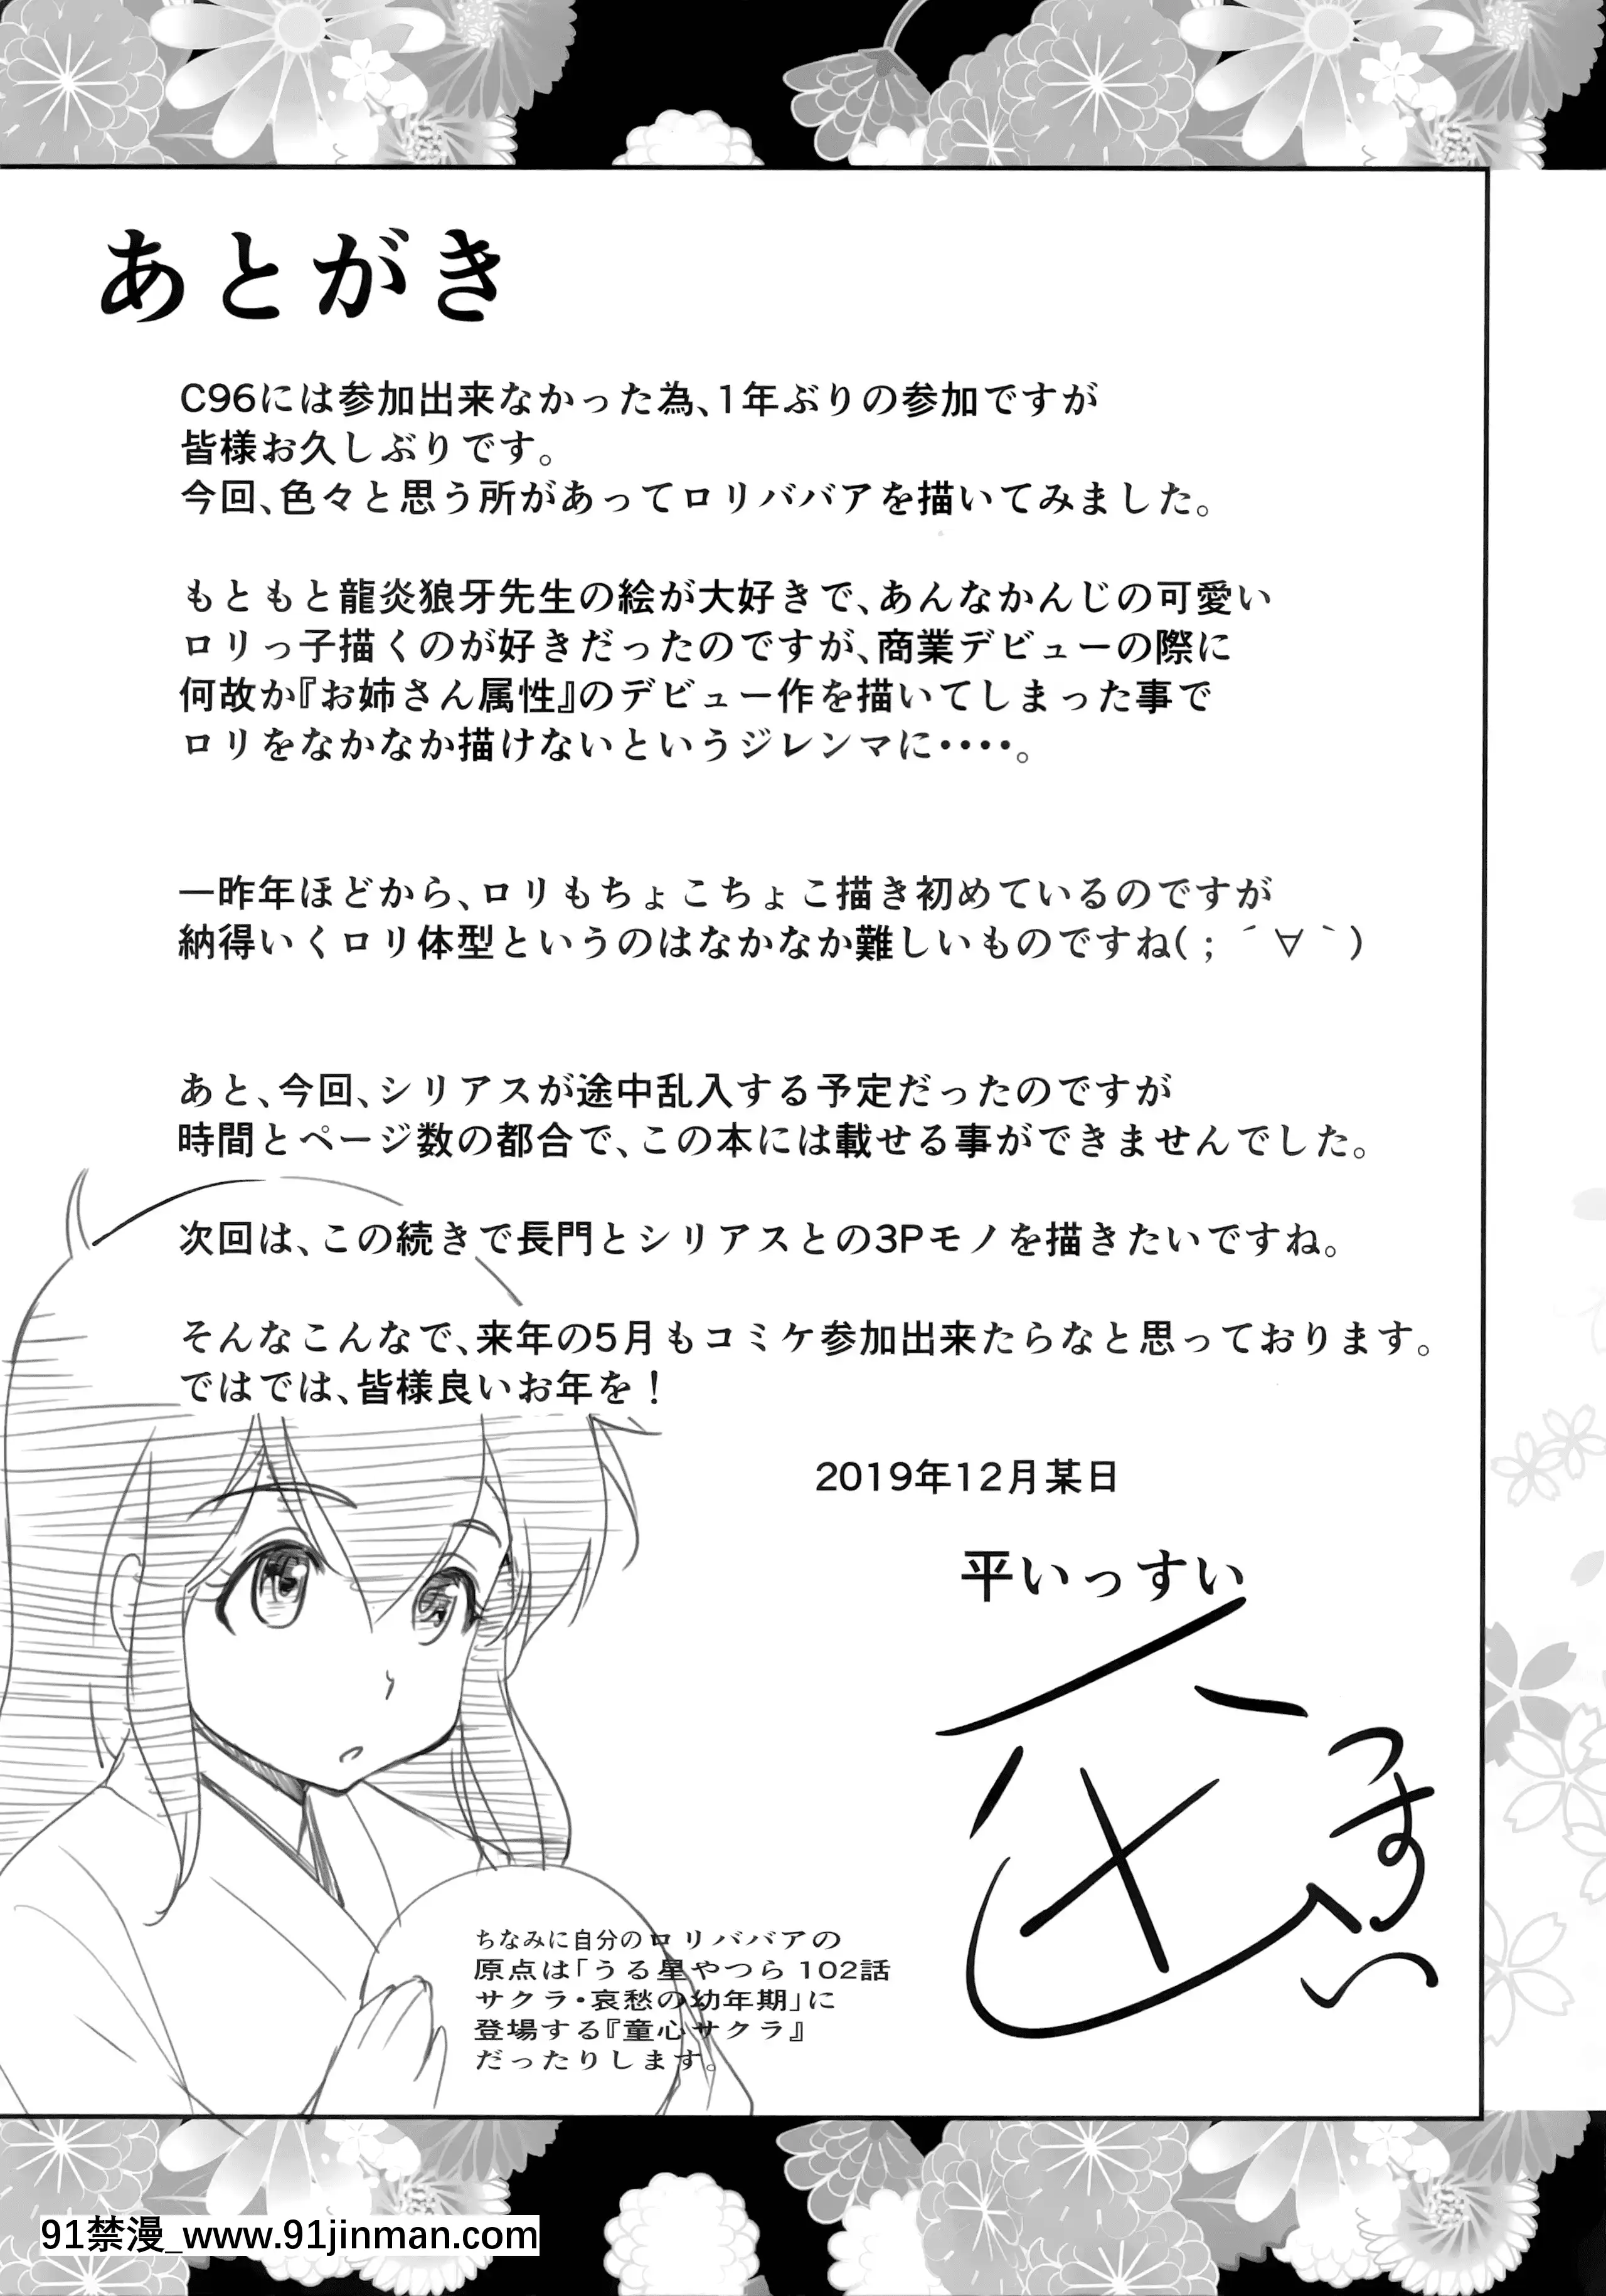 あとがき
C96には参加出来なかった為、1年ぶりの参加ですが
皆様お久しぶりです。
今回、色々と思う所があってロリババアを描いてみました。
もともと龍炎狼牙先生の絵が大好きで、あんなかんじの可愛い
ロリっ子描くのが好きだったのですが、商業デビューの際に
何故か『お姉さん属性』のデビュー作を描いてしまった事で
ロリをなかなか描けないというジレンマに・・・・。
一昨年ほどから、ロリもちょこちょこ描き初めているのですが
納得いくロリ体型というのはなかなか難しいものですね(；´∀｀)
あと、今回、シリアスが途中乱入する予定だったのですが
時間とページ数の都合で、この本には載せる事ができませんでした。
次回は、この続きで長門とシリアスとの3Pモノを描きたいですね。
そんなこんなで、来年の5月もコミケ参加出来たらなと思っております。
ではでは、皆様良いお年を！
2019年12月某日
平いっすい
ちなみに自分のロリババアの
原点は「うる星やつら 102話
サクラ・哀愁の幼年期」に
登場する『童心サクラ』
だったりします。
91禁漫_www.91jinman.com